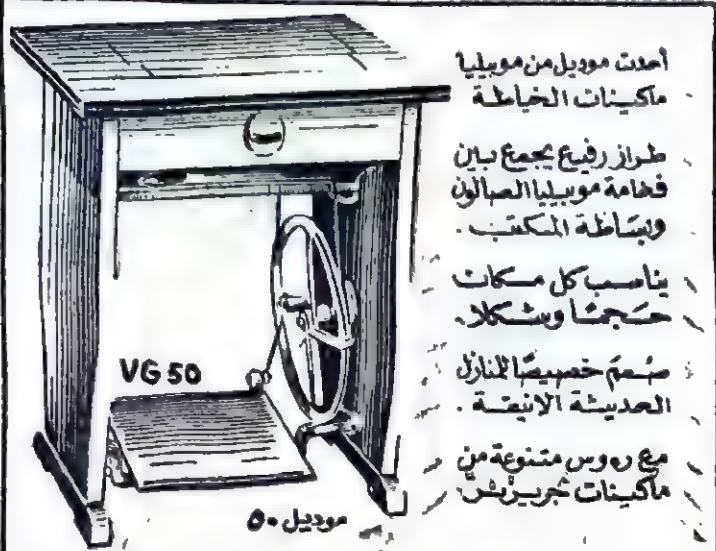 أحدث موديل من موبيليا
ماكينات الخياطة
طراز رفيع يجمع بين
فخامة موبيليا الصالون
وبساطة المكتب .
يناسب كل مكان
حجمًا وشكلا .
صمم خصيصًا للمنازل
الحديثة الانيقة .
مع رءوس متنوعة من
ماكينات
VG 50
موديل ٥٠